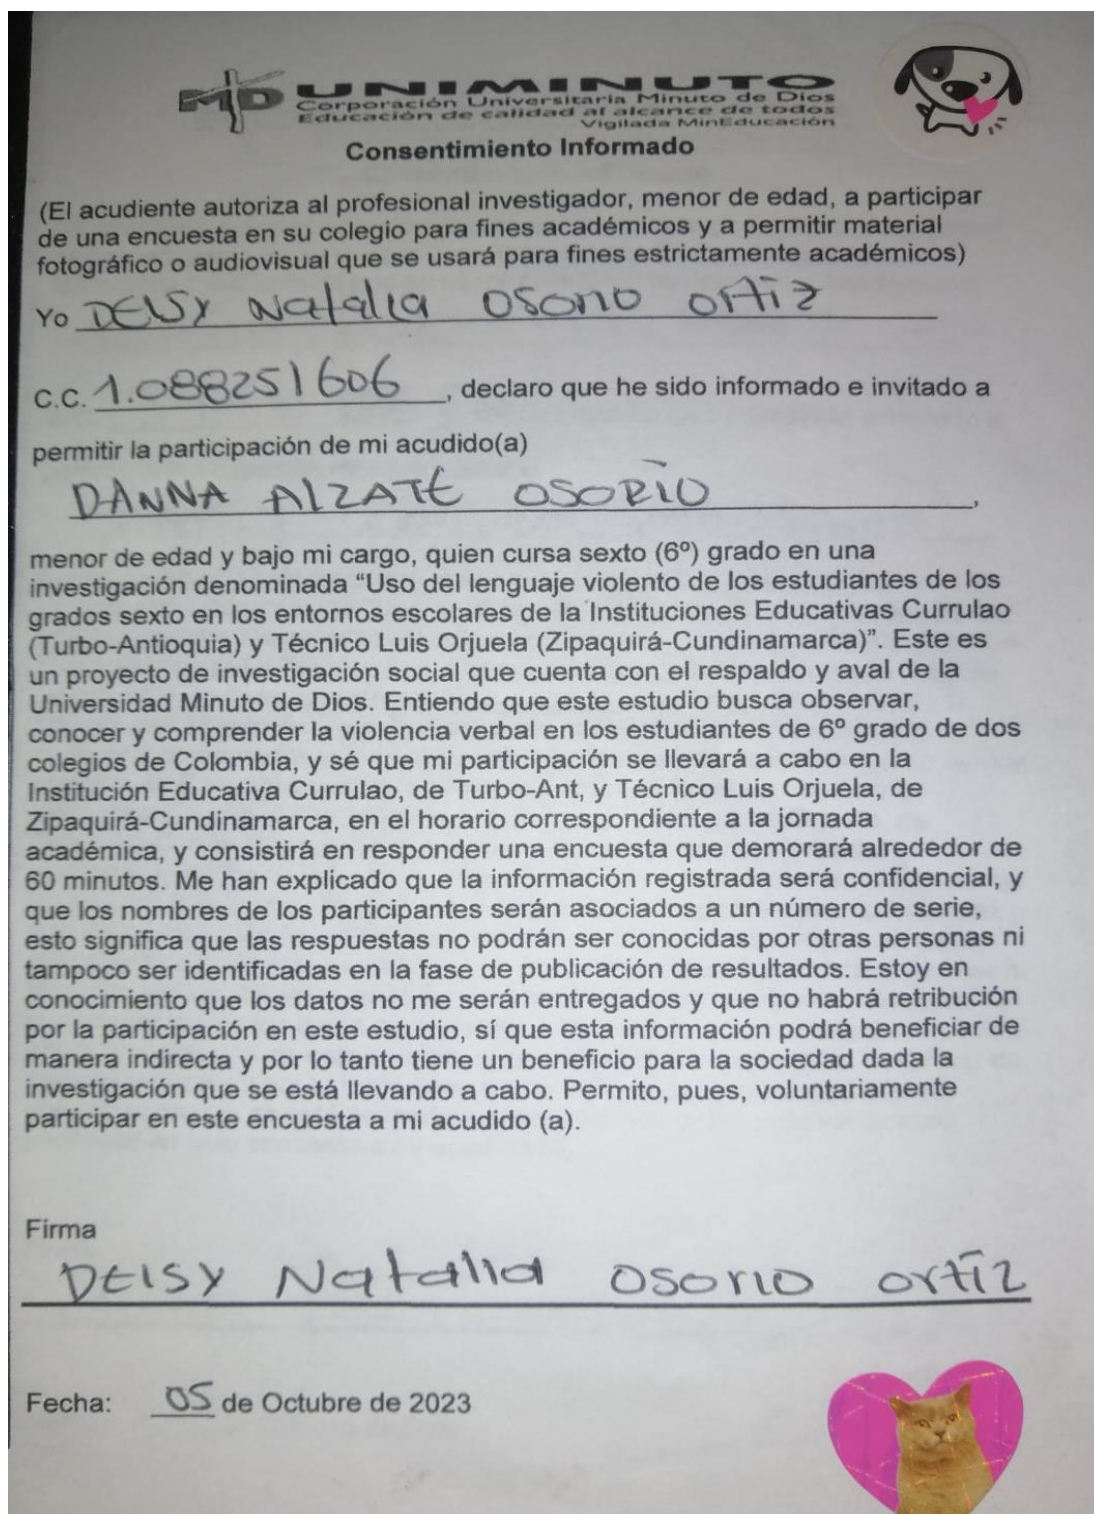 MD UNIMINUTO
Corporación Universitaria Minuto de Dios
Educación de calidad al alcance de todos
Vigilada MinEducación
Consentimiento Informado
(El acudiente autoriza al profesional investigador, menor de edad, a participar
de una encuesta en su colegio para fines académicos y a permitir material
fotográfico o audiovisual que se usará para fines estrictamente académicos)
Yo DEISY Natalia OSORIO ORTIZ
C.C. 1.088251606, declaro que he sido informado e invitado a
permitir la participación de mi acudido(a)
DANNA ALZATE OSORIO,
menor de edad y bajo mi cargo, quien cursa sexto (6º) grado en una
investigación denominada “Uso del lenguaje violento de los estudiantes de los
grados sexto en los entornos escolares de la Instituciones Educativas Currulao
(Turbo-Antioquia) y Técnico Luis Orjuela (Zipaquirá-Cundinamarca)”. Este es
un proyecto de investigación social que cuenta con el respaldo y aval de la
Universidad Minuto de Dios. Entiendo que este estudio busca observar,
conocer y comprender la violencia verbal en los estudiantes de 6º grado de dos
colegios de Colombia, y sé que mi participación se llevará a cabo en la
Institución Educativa Currulao, de Turbo-Ant, y Técnico Luis Orjuela, de
Zipaquirá-Cundinamarca, en el horario correspondiente a la jornada
académica, y consistirá en responder una encuesta que demorará alrededor de
60 minutos. Me han explicado que la información registrada será confidencial, y
que los nombres de los participantes serán asociados a un número de serie,
esto significa que las respuestas no podrán ser conocidas por otras personas ni
tampoco ser identificadas en la fase de publicación de resultados. Estoy en
conocimiento que los datos no me serán entregados y que no habrá retribución
por la participación en este estudio, sí que esta información podrá beneficiar de
manera indirecta y por lo tanto tiene un beneficio para la sociedad dada la
investigación que se está llevando a cabo. Permito, pues, voluntariamente
participar en este encuesta a mi acudido (a).
Firma
DEISY Natalia OSORIO ORTIZ
Fecha: 05 de Octubre de 2023